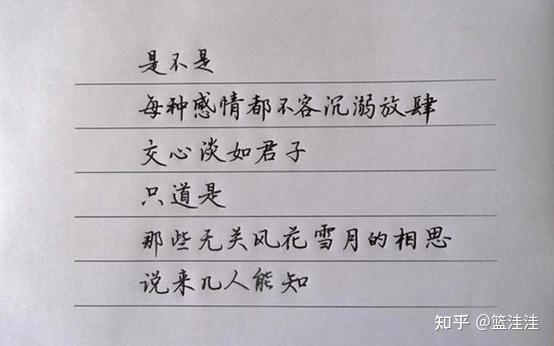 是不是
每种感情都不容沉溺放肆
交心淡如君子
只道是
那些无关风花雪月的相思
说来几人能知
知乎 @篮洼洼